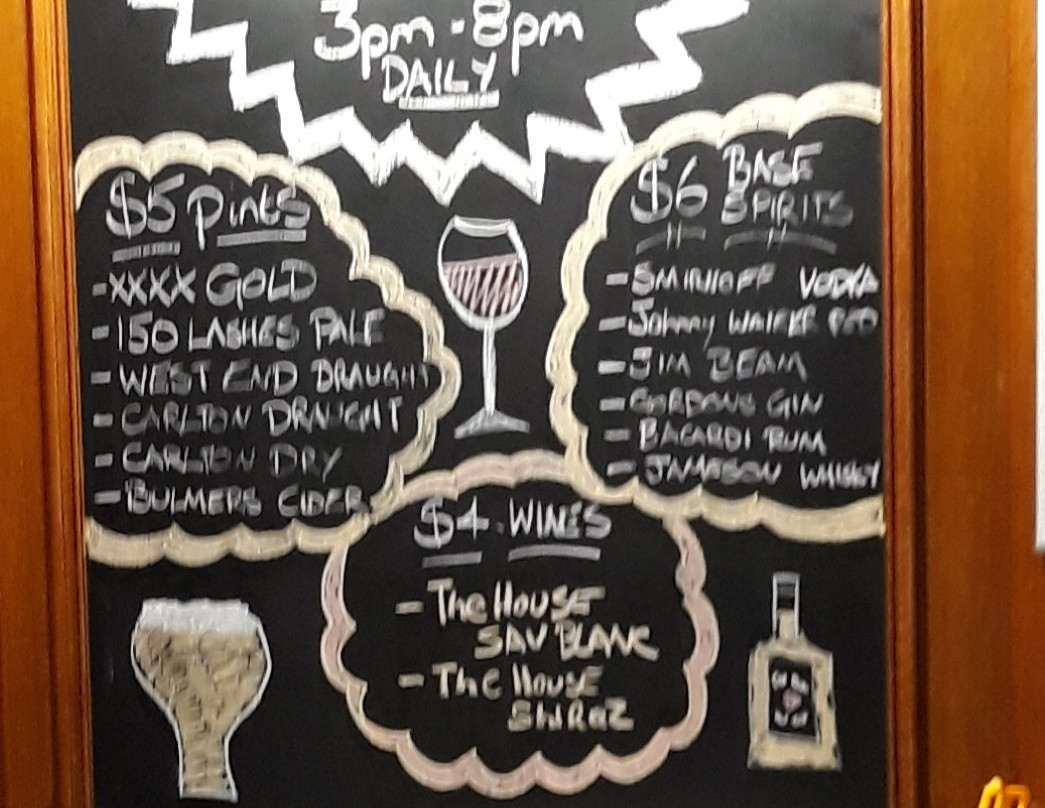 3pm - 8pm
DAILY
$5 Pints
- XXXX GOLD
- 150 LASHES PALE
- WEST END DRAUGHT
- CARLTON DRAUGHT
- CARLTON DRY
- BULMERS CIDER
$6 BASE
SPIRITS
- SMIRNOFF VODKA
- Johnny WALKER RED
- JIM BEAM
- GORDONS GIN
- BACARDI RUM
- JAMESON WHISKY
$4 WINES
- The HOUSE
SAV BLANC
- The House
SHIRAZ